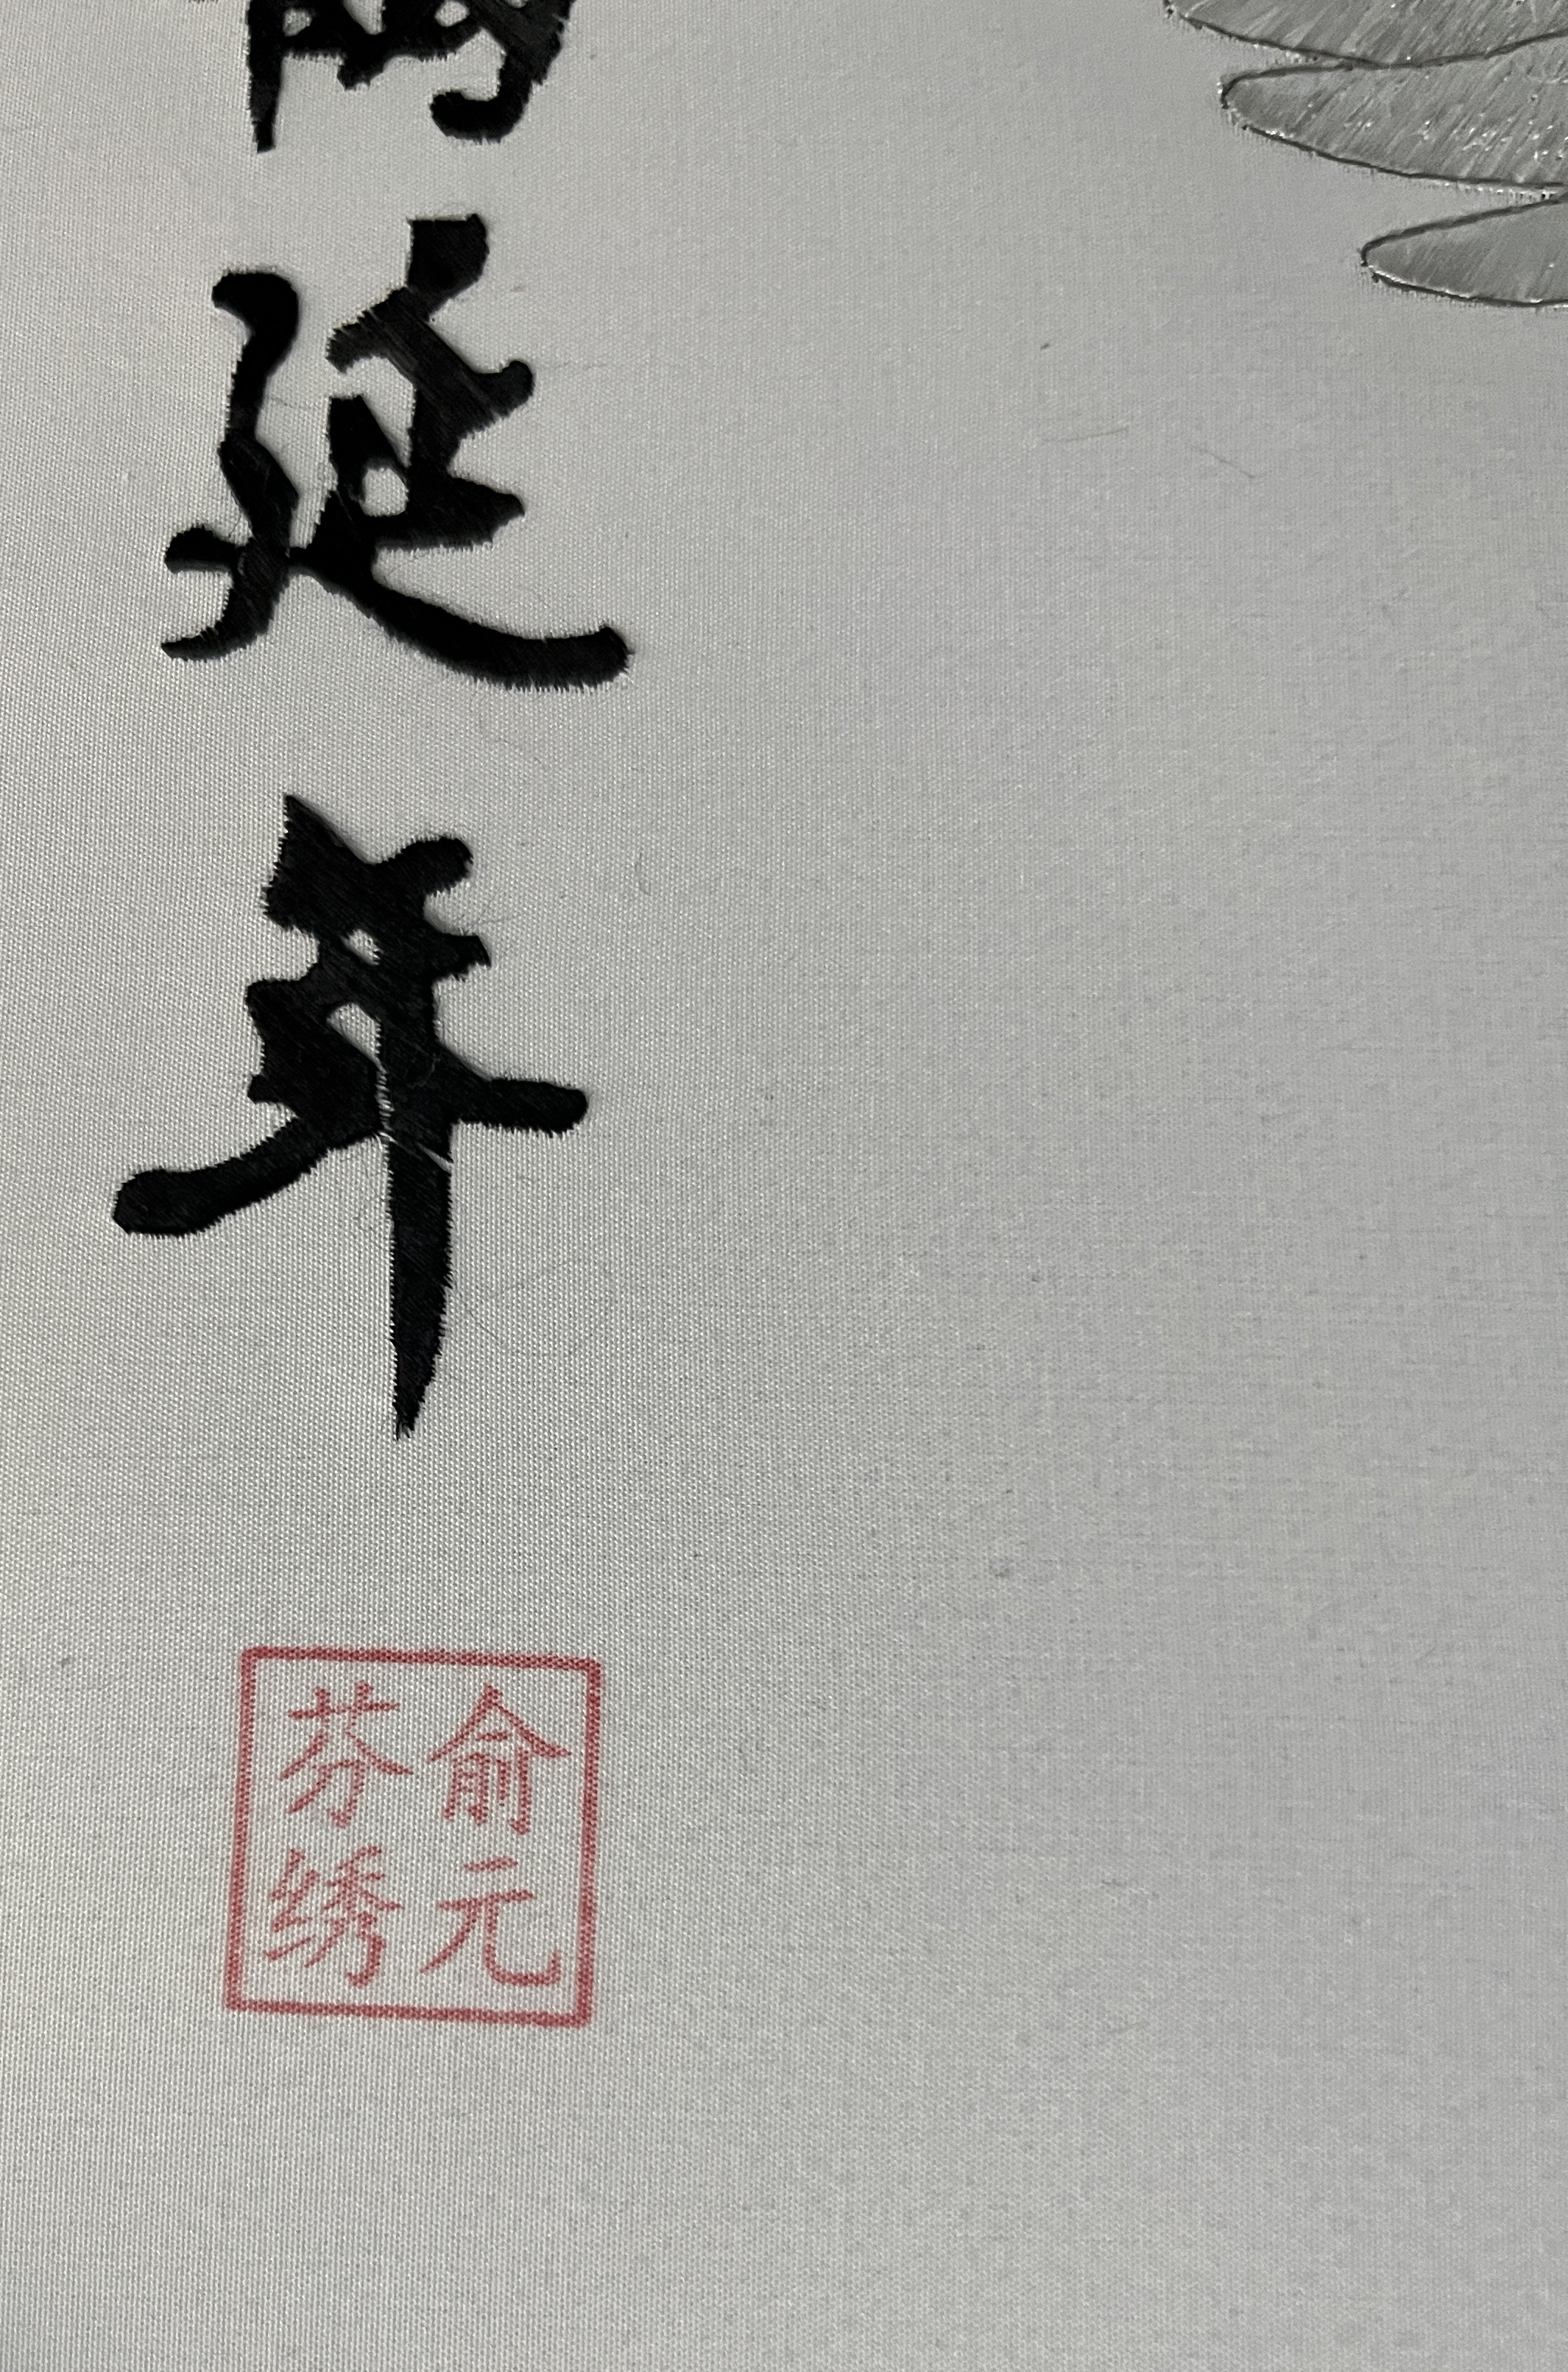 延年
俞元
芬绣